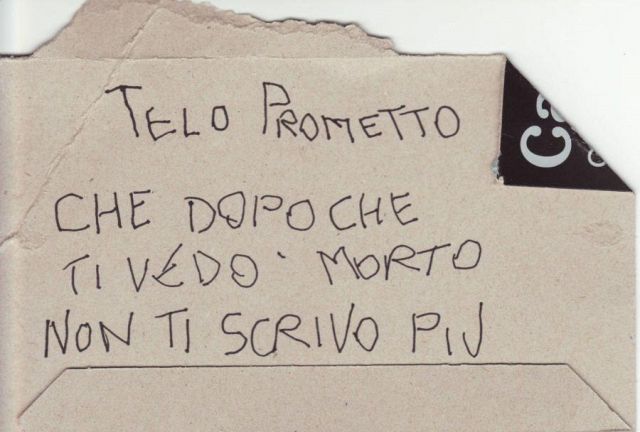 TELO PROMETTO
CHE DOPO CHE
TI VÉDO MORTO
NON TI SCRIVO PIU
Ca